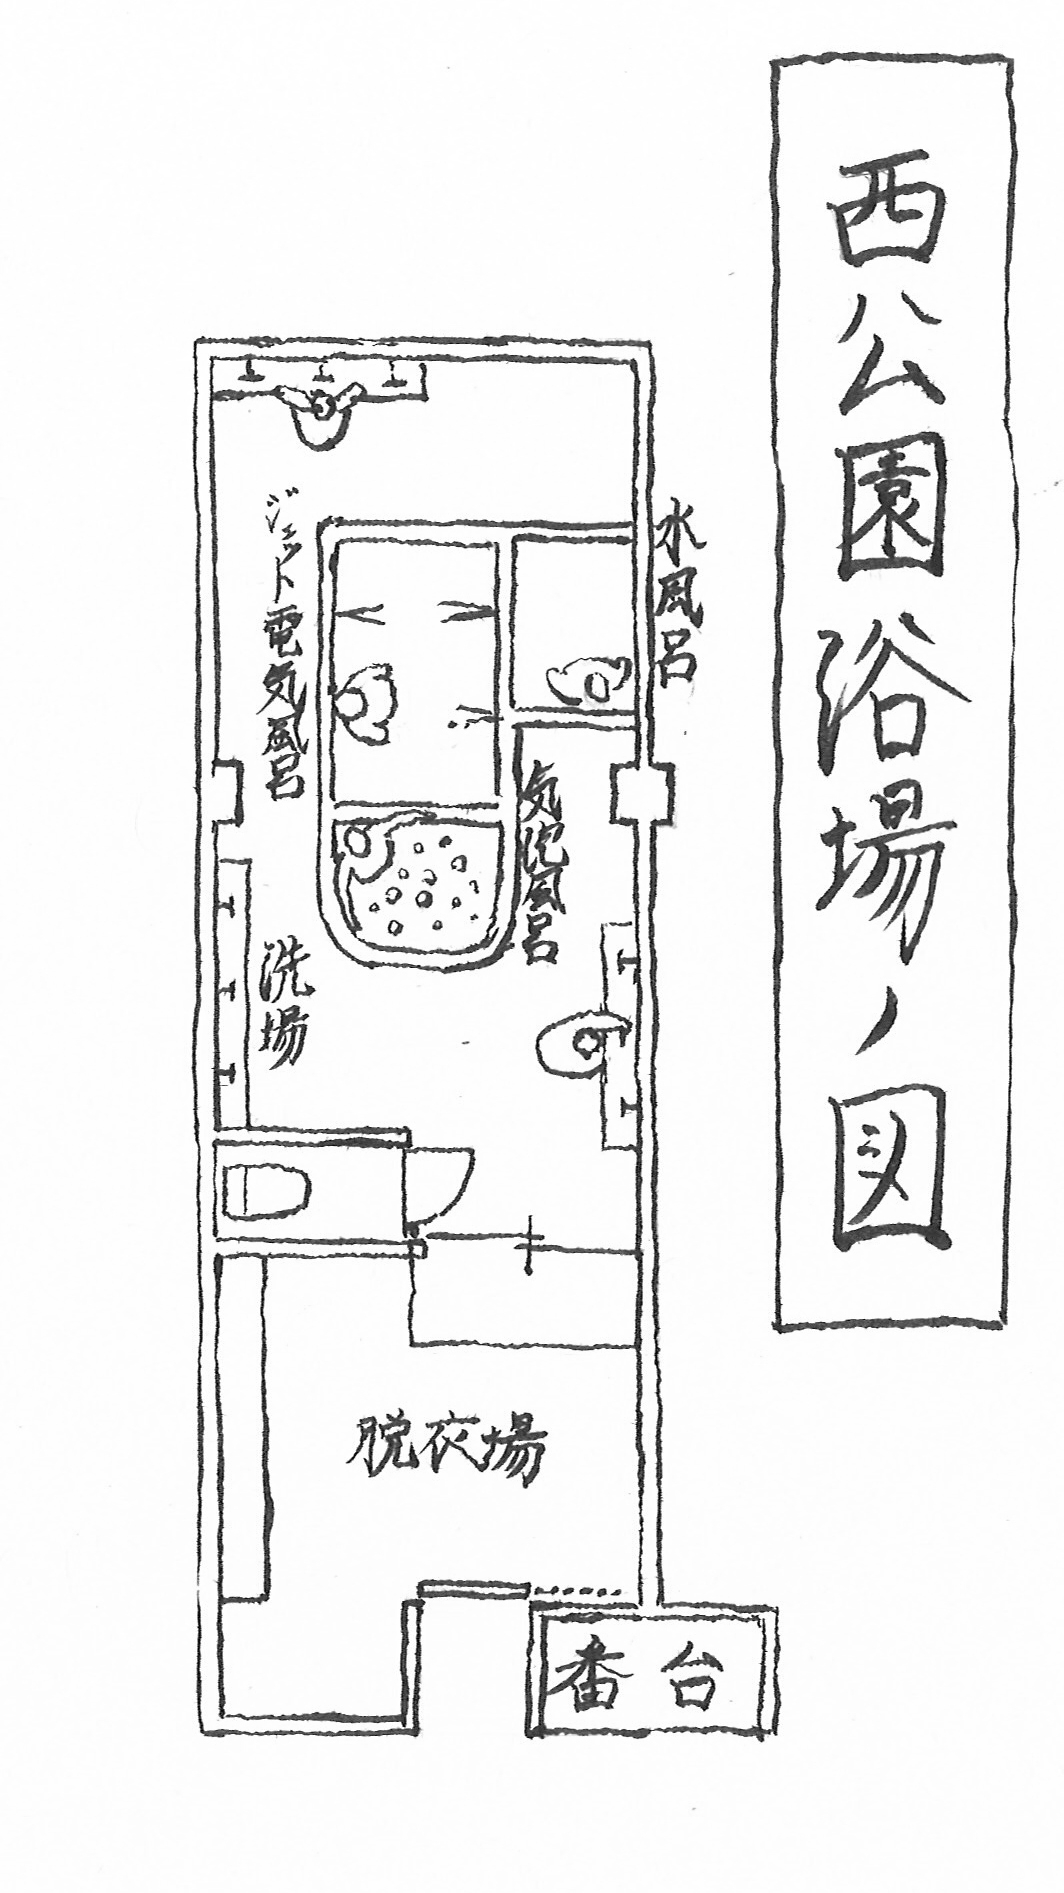 西公園浴場ノ図
水風呂
ジェット電気風呂
気泡風呂
洗場
脱衣場
番台